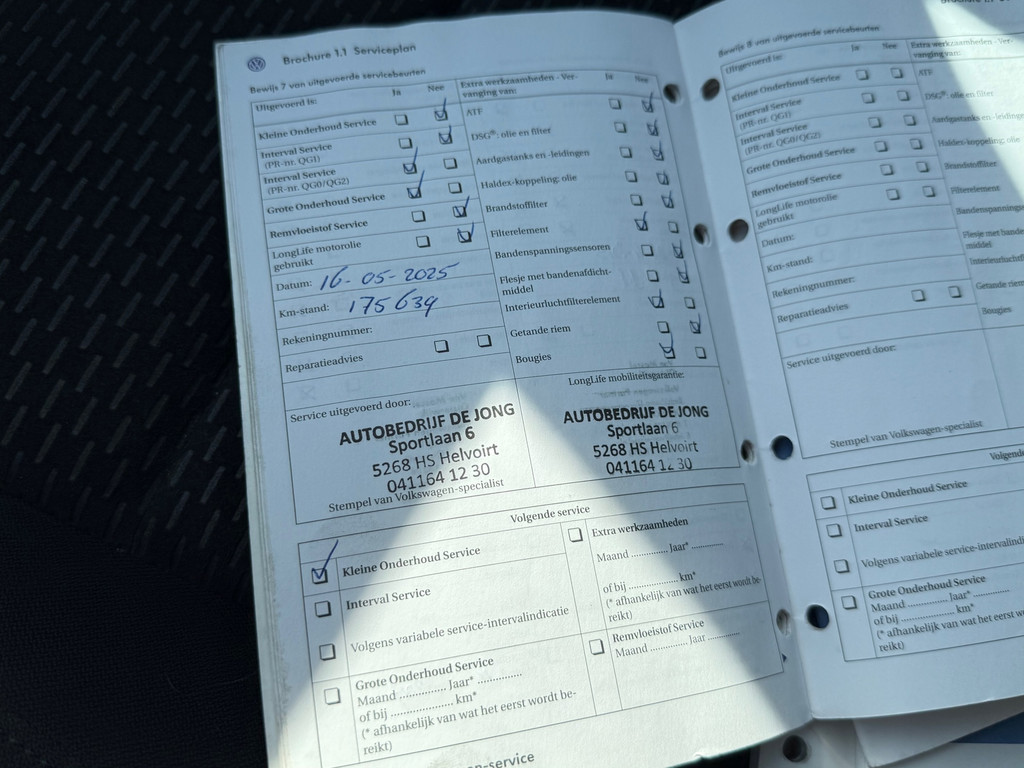 Brochure 1.1 Serviceplan
Bewijs 7 van uitgevoerde servicebeurten
Uitgevoerd is:
Ja
Nee
Kleine Onderhoud Service
Interval Service
(PR-nr. QG1)
Interval Service
(PR-nr. QG0/QG2)
Grote Onderhoud Service
Remvloeistof Service
LongLife motorolie
gebruikt
Datum: 16-05-2025
Km-stand: 175639
Rekeningnummer:
Reparatieadvies
Extra werkzaamheden - Ver-
vanging van:
Ja
Nee
ATF
DSG®: olie en filter
Aardgastanks en -leidingen
Haldex-koppeling: olie
Brandstoffilter
Filterelement
Bandenspanningssensoren
Flesje met bandenafdicht-
middel
Interieurluchtfilterelement
Getande riem
Bougies
Service uitgevoerd door:
AUTOBEDRIJF DE JONG
Sportlaan 6
5268 HS Helvoirt
041164 12 30
Stempel van Volkswagen-specialist
LongLife mobiliteitsgarantie:
AUTOBEDRIJF DE JONG
Sportlaan 6
5268 HS Helvoirt
041164 12 30
Volgende service
Kleine Onderhoud Service
Interval Service
Volgens variabele service-intervalindicatie
Grote Onderhoud Service
Maand ............... Jaar* ...............
of bij ..................... km*
(* afhankelijk van wat het eerst wordt be-
reikt)
Extra werkzaamheden
Maand ............ Jaar* ............
of bij ................ km*
(* afhankelijk van wat het eerst wordt be-
reikt)
Remvloeistof Service
Maand ........... Jaar ...........
-service
Bewijs 8 van uitgevoerde servicebeurten
Uitgevoerd is:
Ja
Nee
Kleine Onderhoud Service
Interval Service
(PR-nr. QG1)
Interval Service
(PR-nr. QG0/QG2)
Grote Onderhoud Service
Remvloeistof Service
LongLife motorolie
gebruikt
Datum:
Km-stand:
Rekeningnummer:
Reparatieadvies
Extra werkzaamheden - Ver-
vanging van:
ATF
DSG®: olie en filter
Aardgastanks en -leidingen
Haldex-koppeling: olie
Brandstoffilter
Filterelement
Bandenspannings
Flesje met bande
middel
Interieurluchtf
Getande riem
Bougies
Service uitgevoerd door:
Stempel van Volkswagen-specialist
Kleine Onderhoud Service
Interval Service
Volgens variabele service-intervalindi
Grote Onderhoud Service
Maand ............. Jaar* ............
of bij ................ km*
(* afhankelijk van wat het eerst wo
reikt)